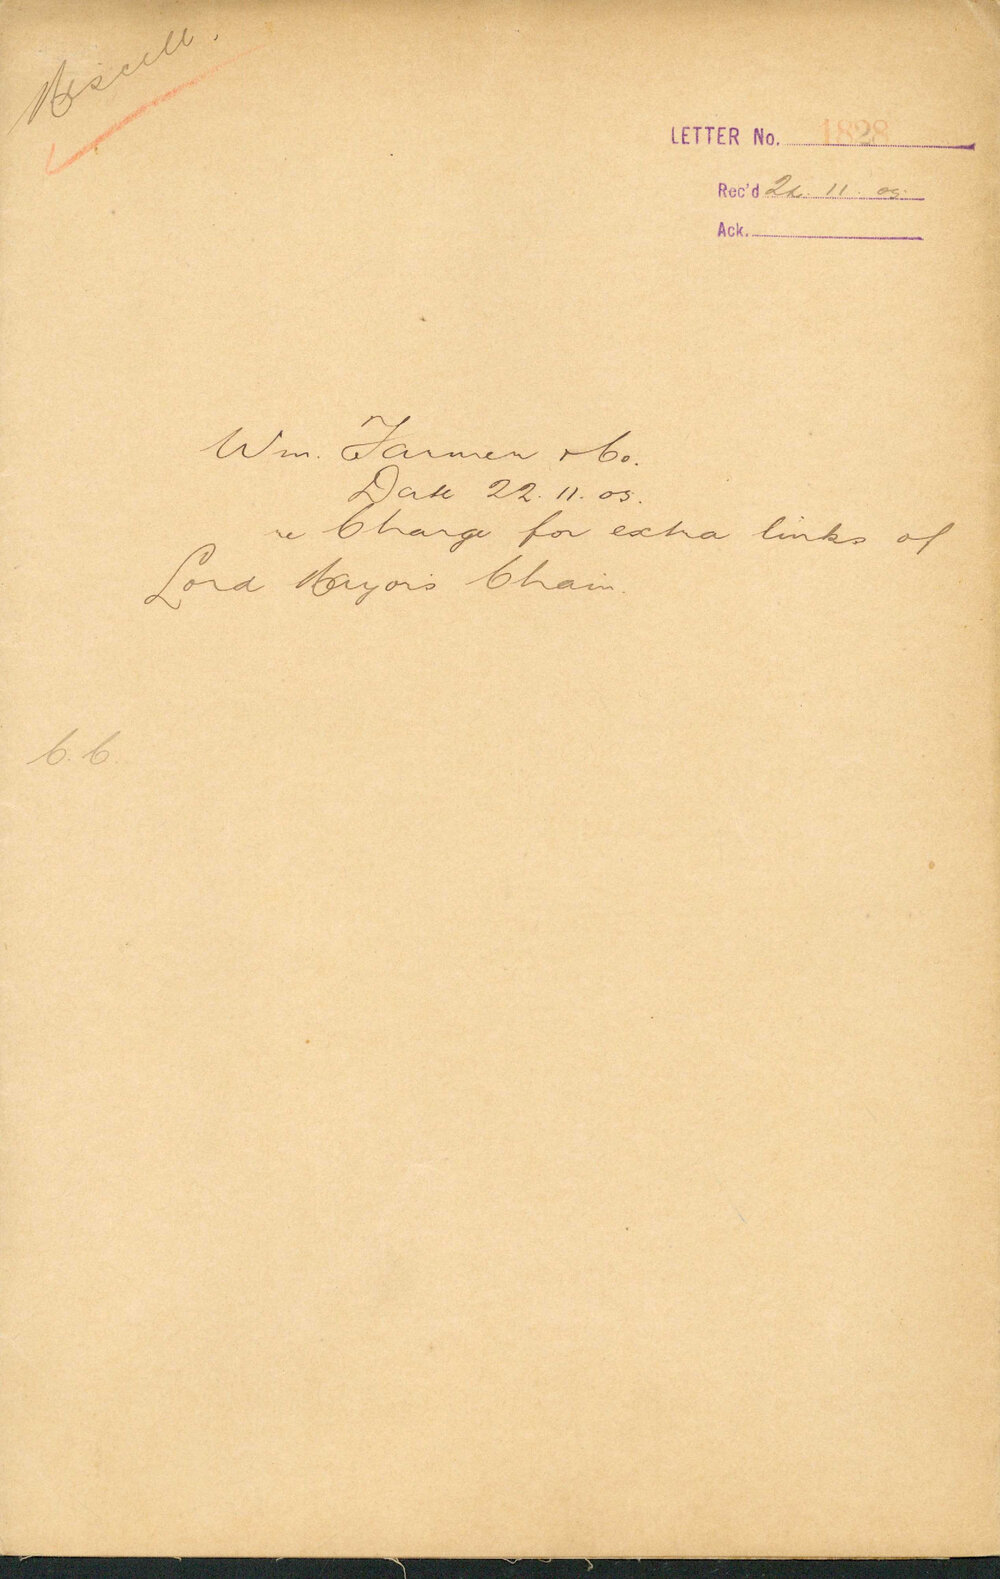 Miscell.
LETTER No. 1828
Rec'd 22. 11. 05.
Ack.
Wm. Farmer & Co.
Date 22. 11. 05.
re Charge for extra links of
Lord Mayor's Chain.
C. C.